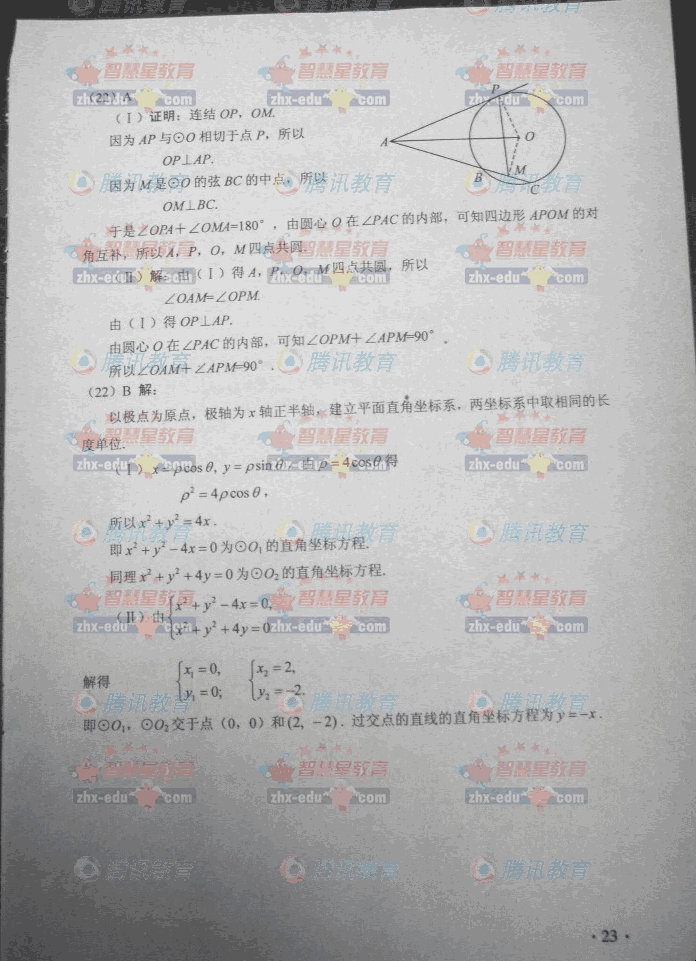 (22) A
(Ⅰ)证明: 连结 OP, OM.
因为 AP 与⊙O 相切于点 P, 所以
OP⊥AP.
因为 M 是⊙O 的弦 BC 的中点, 所以
OM⊥BC.
于是∠OPA+∠OMA=180°, 由圆心 O 在∠PAC 的内部, 可知四边形 APOM 的对
角互补, 所以 A, P, O, M 四点共圆.
(Ⅱ)解: 由(Ⅰ)得 A, P, O, M 四点共圆, 所以
∠OAM=∠OPM.
由(Ⅰ)得 OP⊥AP.
由圆心 O 在∠PAC 的内部, 可知∠OPM+∠APM=90°.
所以∠OAM+∠APM=90°.
P
A
O
B
M
C
(22) B 解:
以极点为原点, 极轴为 x 轴正半轴, 建立平面直角坐标系, 两坐标系中取相同的长
度单位.
(Ⅰ) x=ρcosθ, y=ρsinθ, 由 ρ=4cosθ 得
ρ²=4ρcosθ,
所以 x²+y²=4x.
即 x²+y²-4x=0 为⊙O₁的直角坐标方程.
同理 x²+y²+4y=0 为⊙O₂的直角坐标方程.
(Ⅱ)由 { x²+y²-4x=0,
x²+y²+4y=0
解得 { x₁=0, { x₂=2,
y₁=0; y₂=-2.
即⊙O₁, ⊙O₂交于点 (0, 0) 和 (2, -2). 过交点的直线的直角坐标方程为 y=-x.
·23·
智慧星教育
zhx-edu com
腾讯教育